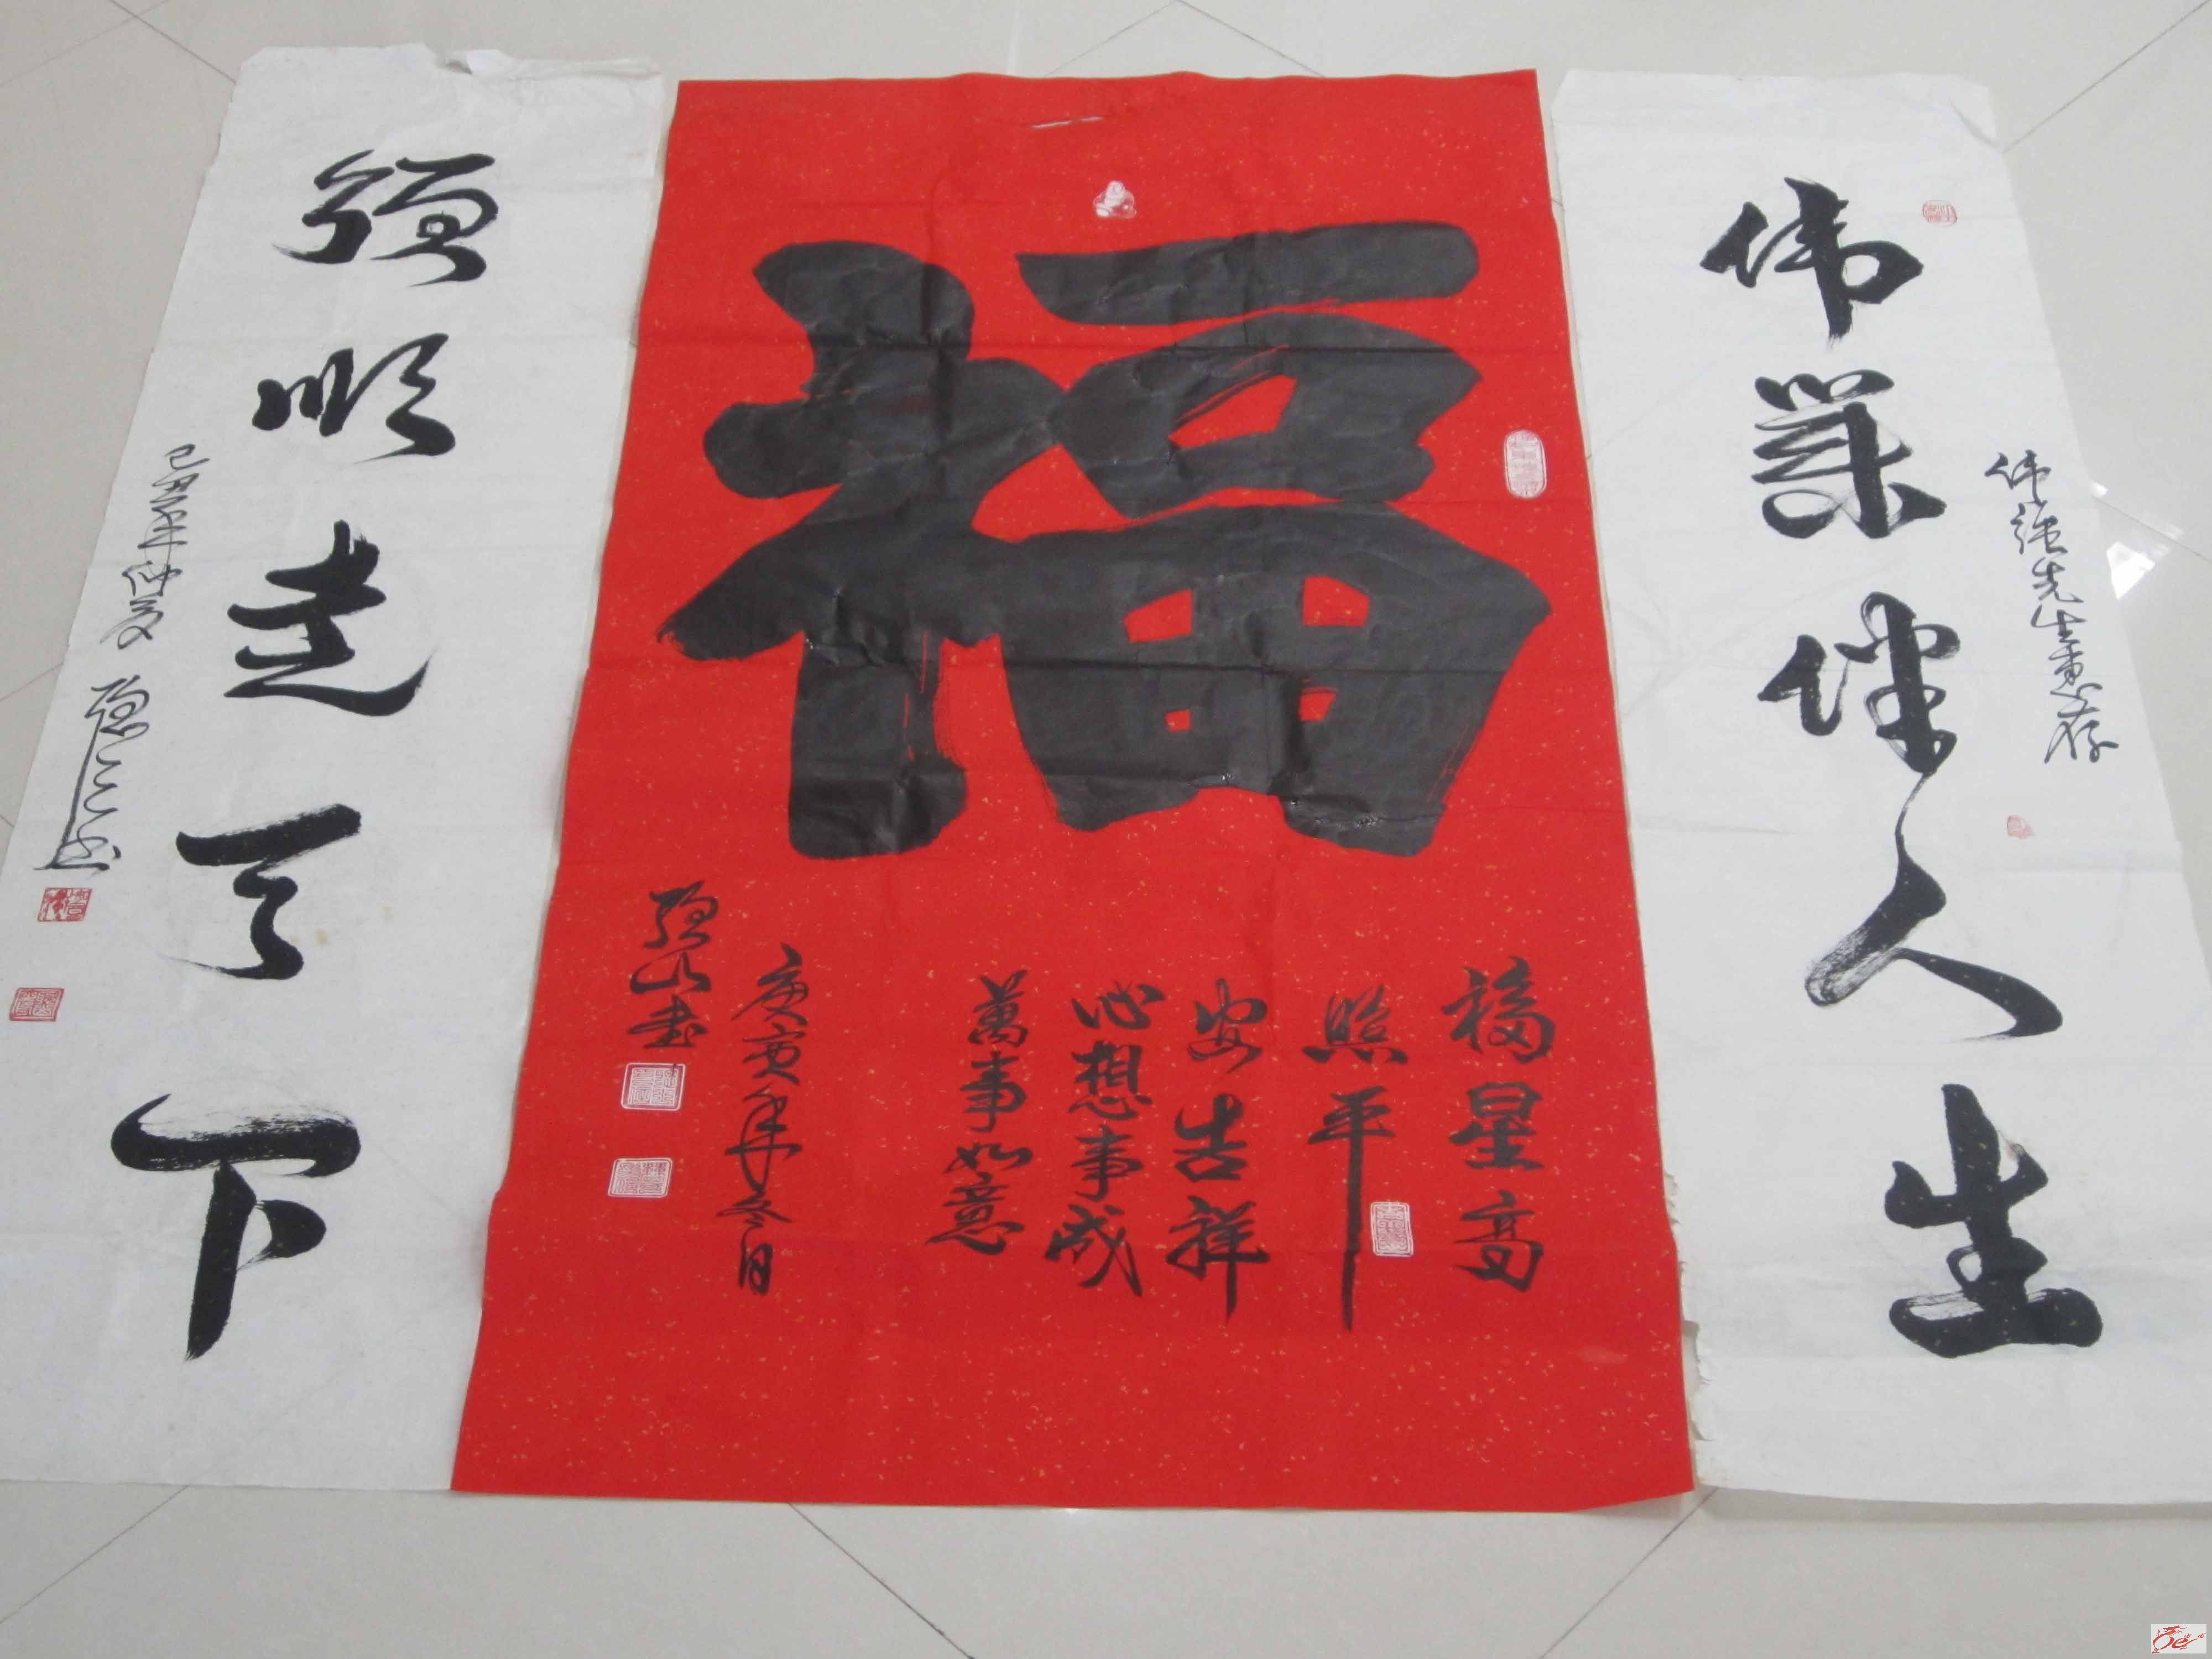 伟业伴人生
伟强先生惠存
福
福星高
照平
安吉祥
心想事成
萬事如意
庚寅年冬日
强山書
强顺走天下
己丑年仲夏